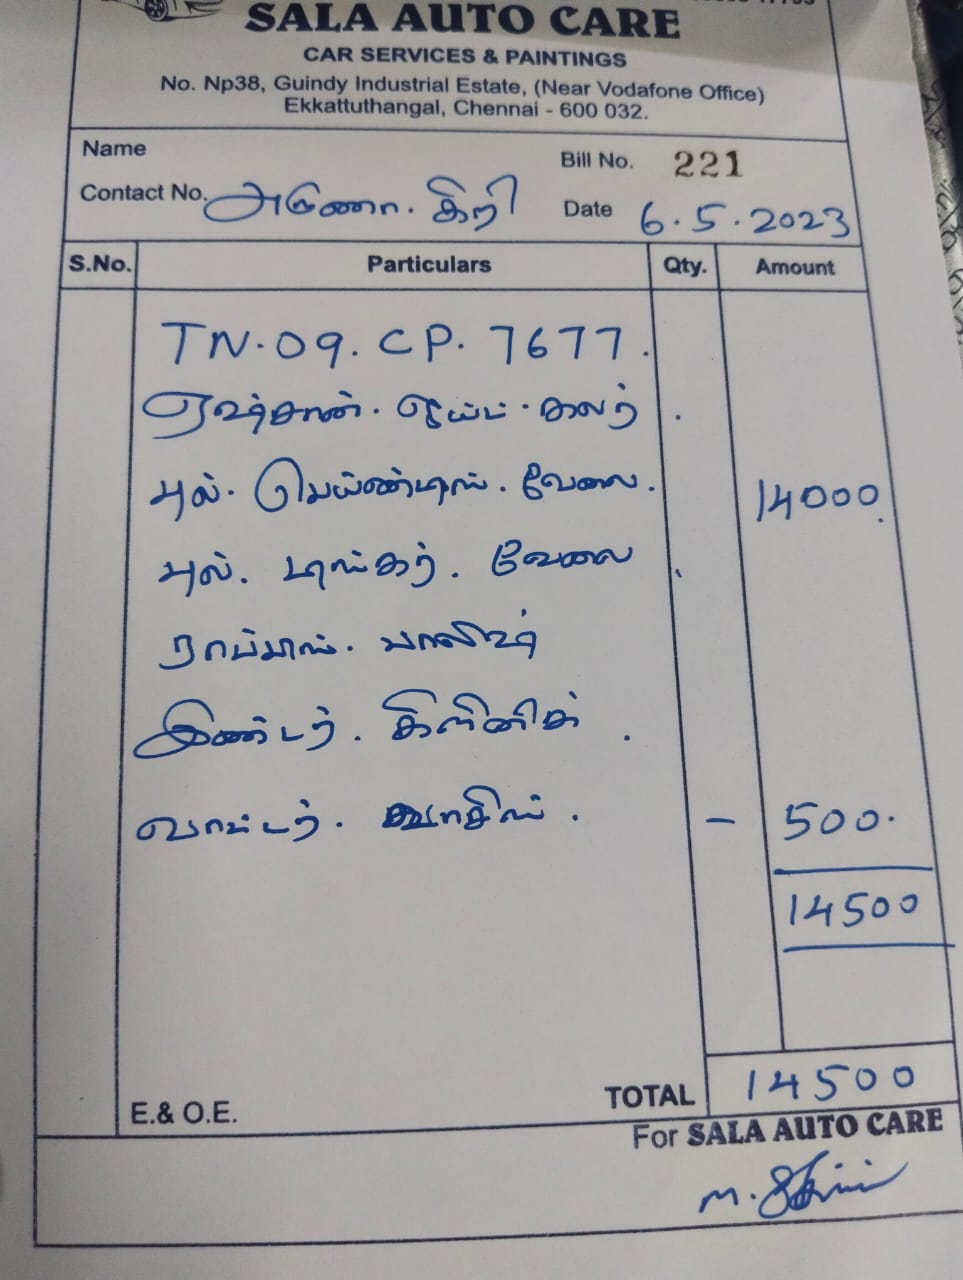 SALA AUTO CARE
CAR SERVICES & PAINTINGS
No. Np38, Guindy Industrial Estate, (Near Vodafone Office)
Ekkattuthangal, Chennai - 600 032.
Name
Bill No. 221
Contact No. அருணா. கிரி
Date 6.5.2023
S.No. Particulars Qty. Amount
TN.09.CP.7677.
கலர்
புல். பெய்ண்டிங். வேலை. 14000.
புல். டிங்கர். வேலை
ரப்பிங். பாலிஷ்
இண்டர். கிளினிக்
வாட்டர். வாசிங். - 500.
14500
TOTAL 14500
E.& O.E.
For SALA AUTO CARE